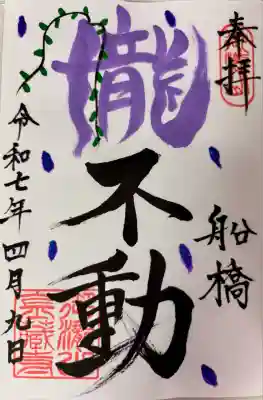 奉拝
船橋
龍
不動
令和七年四月九日